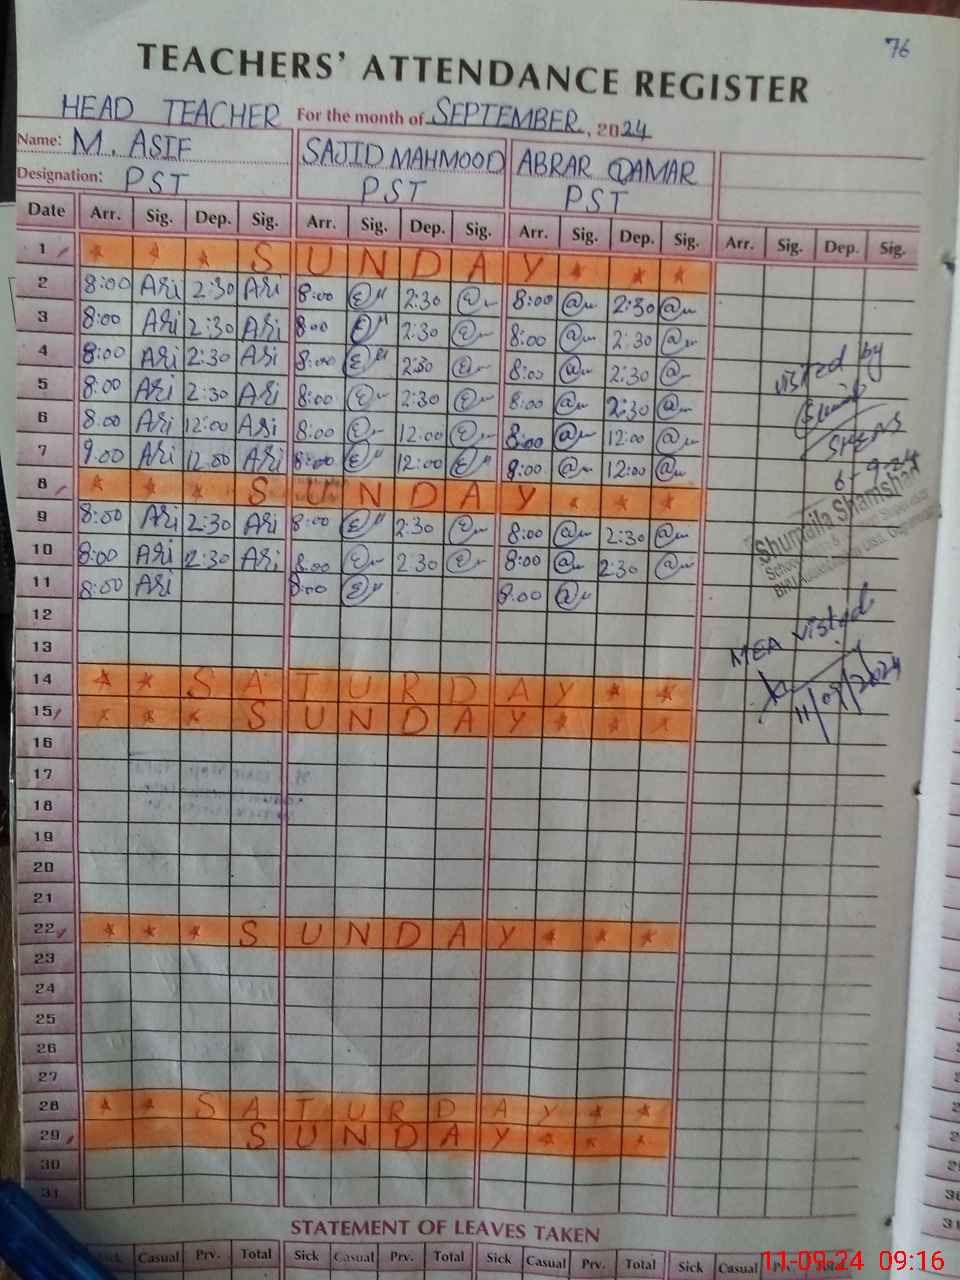 76
TEACHERS' ATTENDANCE REGISTER
HEAD TEACHER For the month of SEPTEMBER, 2024
Name: M. ASIF SAJID MAHMOOD ABRAR QAMAR
Designation: PST PST PST
Date Arr. Sig. Dep. Sig. Arr. Sig. Dep. Sig. Arr. Sig. Dep. Sig. Arr. Sig. Dep. Sig.
1 * * * S U N D A Y * * *
2 8:00 2:30 8:00 2:30 8:00 2:30
3 8:00 2:30 8:00 2:30 8:00 2:30
4 8:00 2:30 8:00 2:30 8:00 2:30
5 8:00 2:30 8:00 2:30 8:00 2:30
6 8:00 12:00 8:00 12:00 8:00 12:00
7 12:00 8:00 12:00 8:00 12:00
8 * * * S U N D A Y * * *
9 8:00 2:30 8:00 2:30 8:00 2:30
10 8:00 2:30 8:00 2:30 8:00 2:30
11 8:00 8:00 8:00
12
13
14 * * S A T U R D A Y * *
15 * * * S U N D A Y * * *
16
17
18
19
20
21
22 * * * S U N D A Y * * *
23
24
25
26
27
28 * * S A T U R D A Y * *
29 S U N D A Y * * *
30
31
visited by
6-9-24
Shumaila Shamshad
MEA visted
11/09/2024
STATEMENT OF LEAVES TAKEN
Sick Casual Prv. Total Sick Casual Prv. Total Sick Casual Prv. Total Sick Casual
11-09-24 09:16